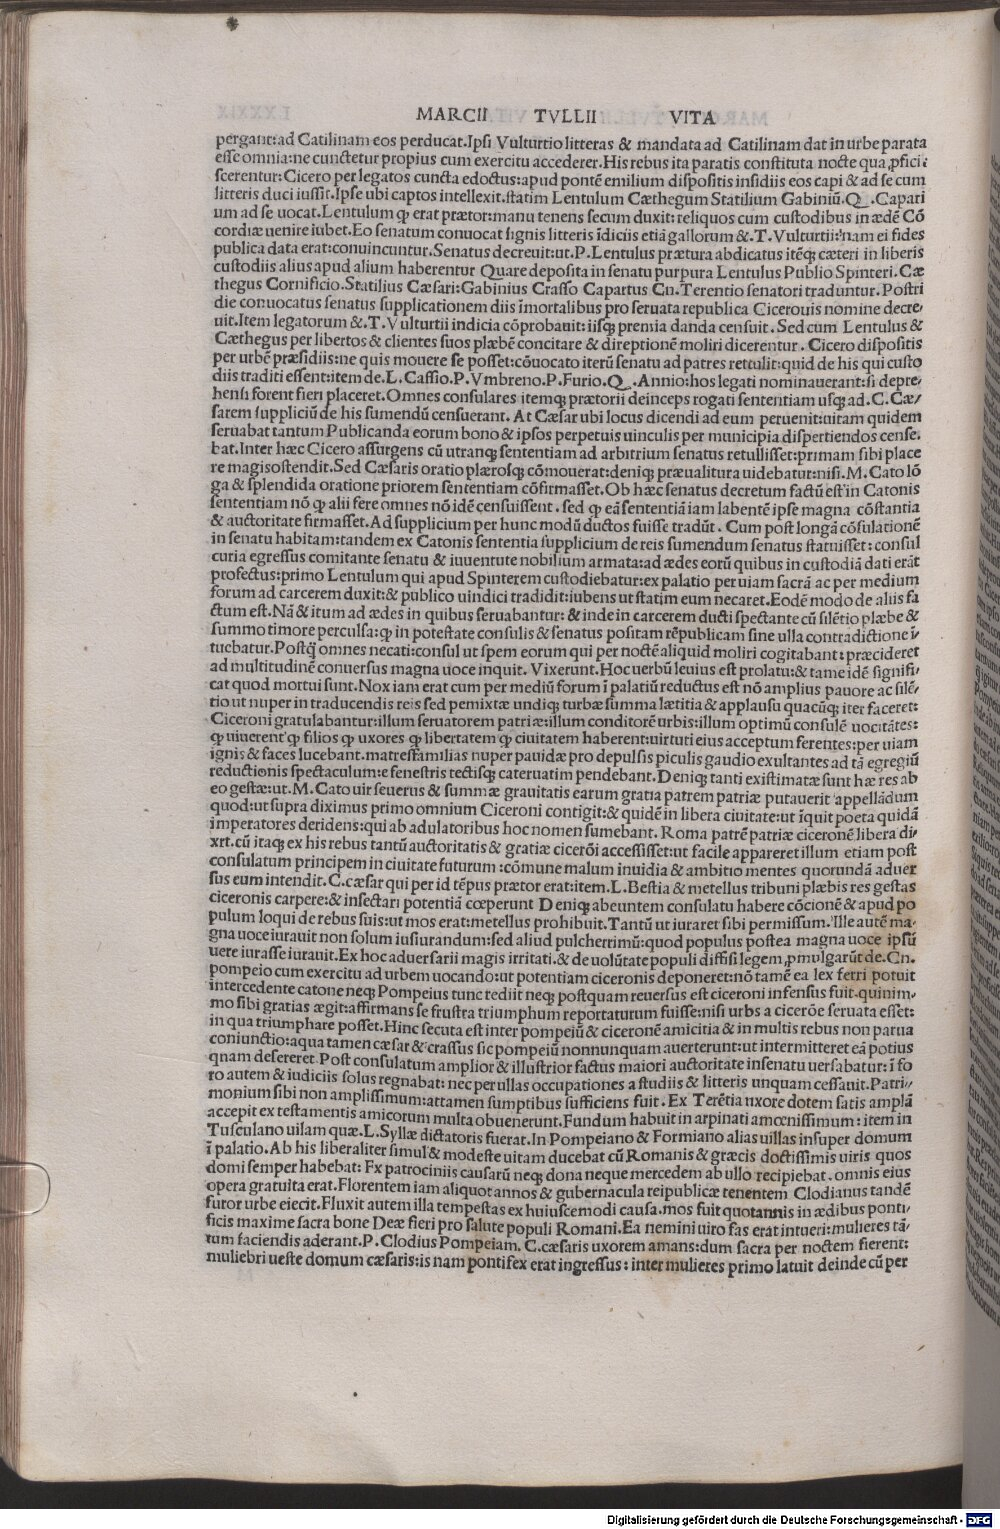 MARCII TVLLII VITA
pergant:ad Catilinam eos perducat.Ipsi Vulturtio litteras & mandata ad Catilinam dat in urbe parata
esse omnia:ne cunctetur propius cum exercitu accederer.His rebus ita paratis constituta nocte qua ꝓfici:
scerentur:Cicero per legatos cuncta edoctus:apud pontē emilium dispositis insidiis eos capi & ad se cum
litteris duci iussit.Ipse ubi captos intellexit.statim Lentulum Cæthegum Statilium Gabiniū.Q .Capari
um ad se uocat.Lentulum ꝙ erat prætor:manu tenens secum duxit:reliquos cum custodibus in ædē Cō
cordiæ uenire iubet.Eo senatum conuocat signis litteris īdiciis etiā gallorum &.T.Vulturtii:nam ei fides
publica data erat:conuincuntur.Senatus decreuit:ut.P.Lentulus prætura abdicatus itēqꝫ cæteri in liberis
custodiis alius apud alium haberentur Quare deposita in senatu purpura Lentulus Publio Spinteri.Cæ
thegus Cornificio.Statilius Cæsari:Gabinius Crasso Capartus Cn.Terentio senatori traduntur.Postri
die conuocatus senatus supplicationem diis īmortalibus pro seruata republica Cicerouis nomine decre/
uit.Item legatorum &.T.Vulturtii indicia cōprobauit:iisqꝫ premia danda censuit.Sed cum Lentulus &
Cæthegus per libertos & clientes suos plæbē concitare & direptionē moliri dicerentur.Cicero dispositis
per urbē præsidiis:ne quis mouere se posset:cōuocato iterū senatu ad patres rettulit:quid de his qui custo
diis traditi essent:item de.L.Cassio.P.Vmbreno.P.Furio.Q .Annio:hos legati nominauerant:si depre/
hensi forent fieri placeret.Omnes consulares itemqꝫ prætorii deinceps rogati sententiam usqꝫ ad.C.Cæ/
sarem suppliciū de his sumendū censuerant.At Cæsar ubi locus dicendi ad eum peruenit:uitam quidem
seruabat tantum Publicanda eorum bono & ipsos perpetuis uinculis per municipia dispertiendos cense.
bat.Inter hæc Cicero assurgens cū utranqꝫ sententiam ad arbitrium senatus retullisset:primam sibi place
re magisostendit.Sed Cæsaris oratio plærosqꝫ cōmouerat:deniqꝫ præualitura uidebatur:nisi.M.Cato lō
ga & splendida oratione priorem sententiam cōfirmasset.Ob hæc senatus decretum factū est in Catonis
sententiam nō ꝙ alii fere omnes nō idē censuissent.sed ꝙ eā sententiā iam labentē ipse magna cōstantia
& auctoritate firmasset.Ad supplicium per hunc modū ductos fuisse tradūt.Cum post longā cōsulationē
in senatu habitam:tandem ex Catonis sententia supplicium de reis sumendum senatus statuisset:consul
curia egressus comitante senatu & iuuentute nobilium armata:ad ædes eorū quibus in custodiā dati erāt
profectus:primo Lentulum qui apud Spinterem custodiebatur:ex palatio per uiam sacrā ac per medium
forum ad carcerem duxit:& publico uindici tradidit:iubens ut statim eum necaret.Eodē modo de aliis fa
ctum est.Nā & itum ad ædes in quibus seruabantur:& inde in carcerem ducti spectante cū silētio plæbe &
summo timore perculsa:ꝙ in potestate consulis & senatus positam rēpublicam sine ulla contradictione ī
tuebatur.Postꝙ̄ omnes necati:consul ut spem eorum qui per noctē aliquid moliri cogitabant:præcideret
ad multitudinē conuersus magna uoce inquit.Vixerunt.Hoc uerbū leuius est prolatu:& tame idē signifi/
cat quod mortui sunt.Nox iam erat cum per mediū forum ī palatiū reductus est nō amplius pauore ac silē/
tio ut nuper in traducendis reis sed pemixtæ undiqꝫ turbæ summa lætitia & applausu quacūqꝫ iter faceret:
Ciceroni gratulabantur:illum seruatorem patriæ:illum conditorē urbis:illum optimū consulē uocitātes:
ꝙ uiuerent ꝙ filios ꝙ uxores ꝙ libertatem ꝙ ciuitatem haberent:uirtuti eius acceptum ferentes:per uiam
ignis & faces lucebant.matresfamilias nuper pauidæ pro depulsis piculis gaudio exultantes ad tā egregiū
reductionis spectaculum:e fenestris tectisqꝫ cateruatim pendebant.Deniqꝫ tanti existimatæ sunt hæ res ab
eo gestæ:ut.M.Cato uir seuerus & summæ grauitatis earum gratia patrem patriæ putauerit appellādum
quod:ut supra diximus primo omnium Ciceroni contigit:& quidē in libera ciuitate:ut īquit poeta quidā
imperatores deridens:qui ab adulatoribus hoc nomen sumebant.Roma patrē patriæ ciceronē libera di/
xrt.cū itaqꝫ ex his rebus tantū auctoritatis & gratiæ cicerōi accessisset:ut facile appareret illum etiam post
consulatum principem in ciuitate futurum:cōmune malum inuidia & ambitio mentes quorundā aduer
sus eum intendit.C.cæsar qui per id tēpus prætor erat:item.L.Bestia & metellus tribuni plæbis res gestas
ciceronis carpere:& insectari potentiā cœperunt Deniqꝫ abeuntem consulatu habere cōcionē & apud po
pulum loqui de rebus suis:ut mos erat:metellus prohibuit.Tantū ut iuraret sibi permissum.Ille autē ma/
gna uoce iurauit non solum iusiurandum:sed aliud pulcherrimū:quod populus postea magna uoce ipsū
uere iurasse iurauit.Ex hoc aduersarii magis irritati.& de uolūtate populi diffisi legem ꝓmulgarūt de.Cn.
pompeio cum exercitu ad urbem uocando:ut potentiam ciceronis deponeret:nō tamē ea lex ferri potuit
intercedente catone neqꝫ Pompeius tunc rediit neqꝫ postquam reuersus est ciceroni infensus fuit.quinim/
mo sibi gratias ægit:affirmans se frustra triumphum reportaturum fuisse:nisi urbs a cicerōe seruata esset:
in qua triumphare posset.Hinc secuta est inter pompeiū & ciceronē amicitia & in multis rebus non parua
coniunctio:aqua tamen cæsar & crassus sic pompeiū nonnunquam auerterunt:ut intermitteret eā potius
qnam desereret.Post consulatum amplior & illustrior factus maiori auctoritate insenatu uersabatur:ī fo
ro autem & iudiciis solus regnabat:nec per ullas occupationes a studiis & litteris unquam cessauit.Patri/
monium sibi non amplissimum:attamen sumptibus sufficiens fuit.Ex Terētia uxore dotem satis amplā
accepit ex testamentis amicorum multa obuenerunt.Fundum habuit in arpinati amœnissimum:item in
Tusculano uilam quæ.L.Syllæ dictatoris fuerat.In Pompeiano & Formiano alias uillas insuper domum
ī palatio.Ab his liberaliter simul & modeste uitam ducebat cū Romanis & græcis doctissimis uiris quos
domi semper habebat:Fx patrociniis causarū neqꝫ dona neque mercedem ab ullo recipiebat.omnis eius
opera gratuita erat.Florentem iam aliquot annos & gubernacula reipublicæ tenentem Clodianus tandē
furor urbe eiecit.Fluxit autem illa tempestas ex huiuscemodi causa.mos fuit quotannis in ædibus ponti/
ficis maxime sacra bone Deæ fieri pro salute populi Romani.Ea nemini uiro fas erat intueri:mulieres tā/
tum faciendis aderant.P.Clodius Pompeiam.C.cæsaris uxorem amans:dum sacra per noctem fierent:
muliebri ueste domum cæsaris:is nam pontifex erat ingressus:inter mulieres primo latuit deinde cū per
Digitalisierung gefördert durch die Deutsche Forschungsgemeinschaft - DFG